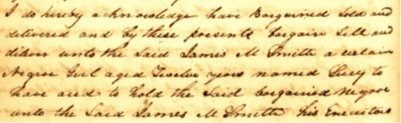 I do hereby acknowledge have Bargained Sold and
delivered and by these presents bargain Sell and
deliver unto the Said James M Smith a certain
Negroe Girl aged Twelve years named to
have and to hold the Said bargained Negroe
unto the Said James M Smith his Executors